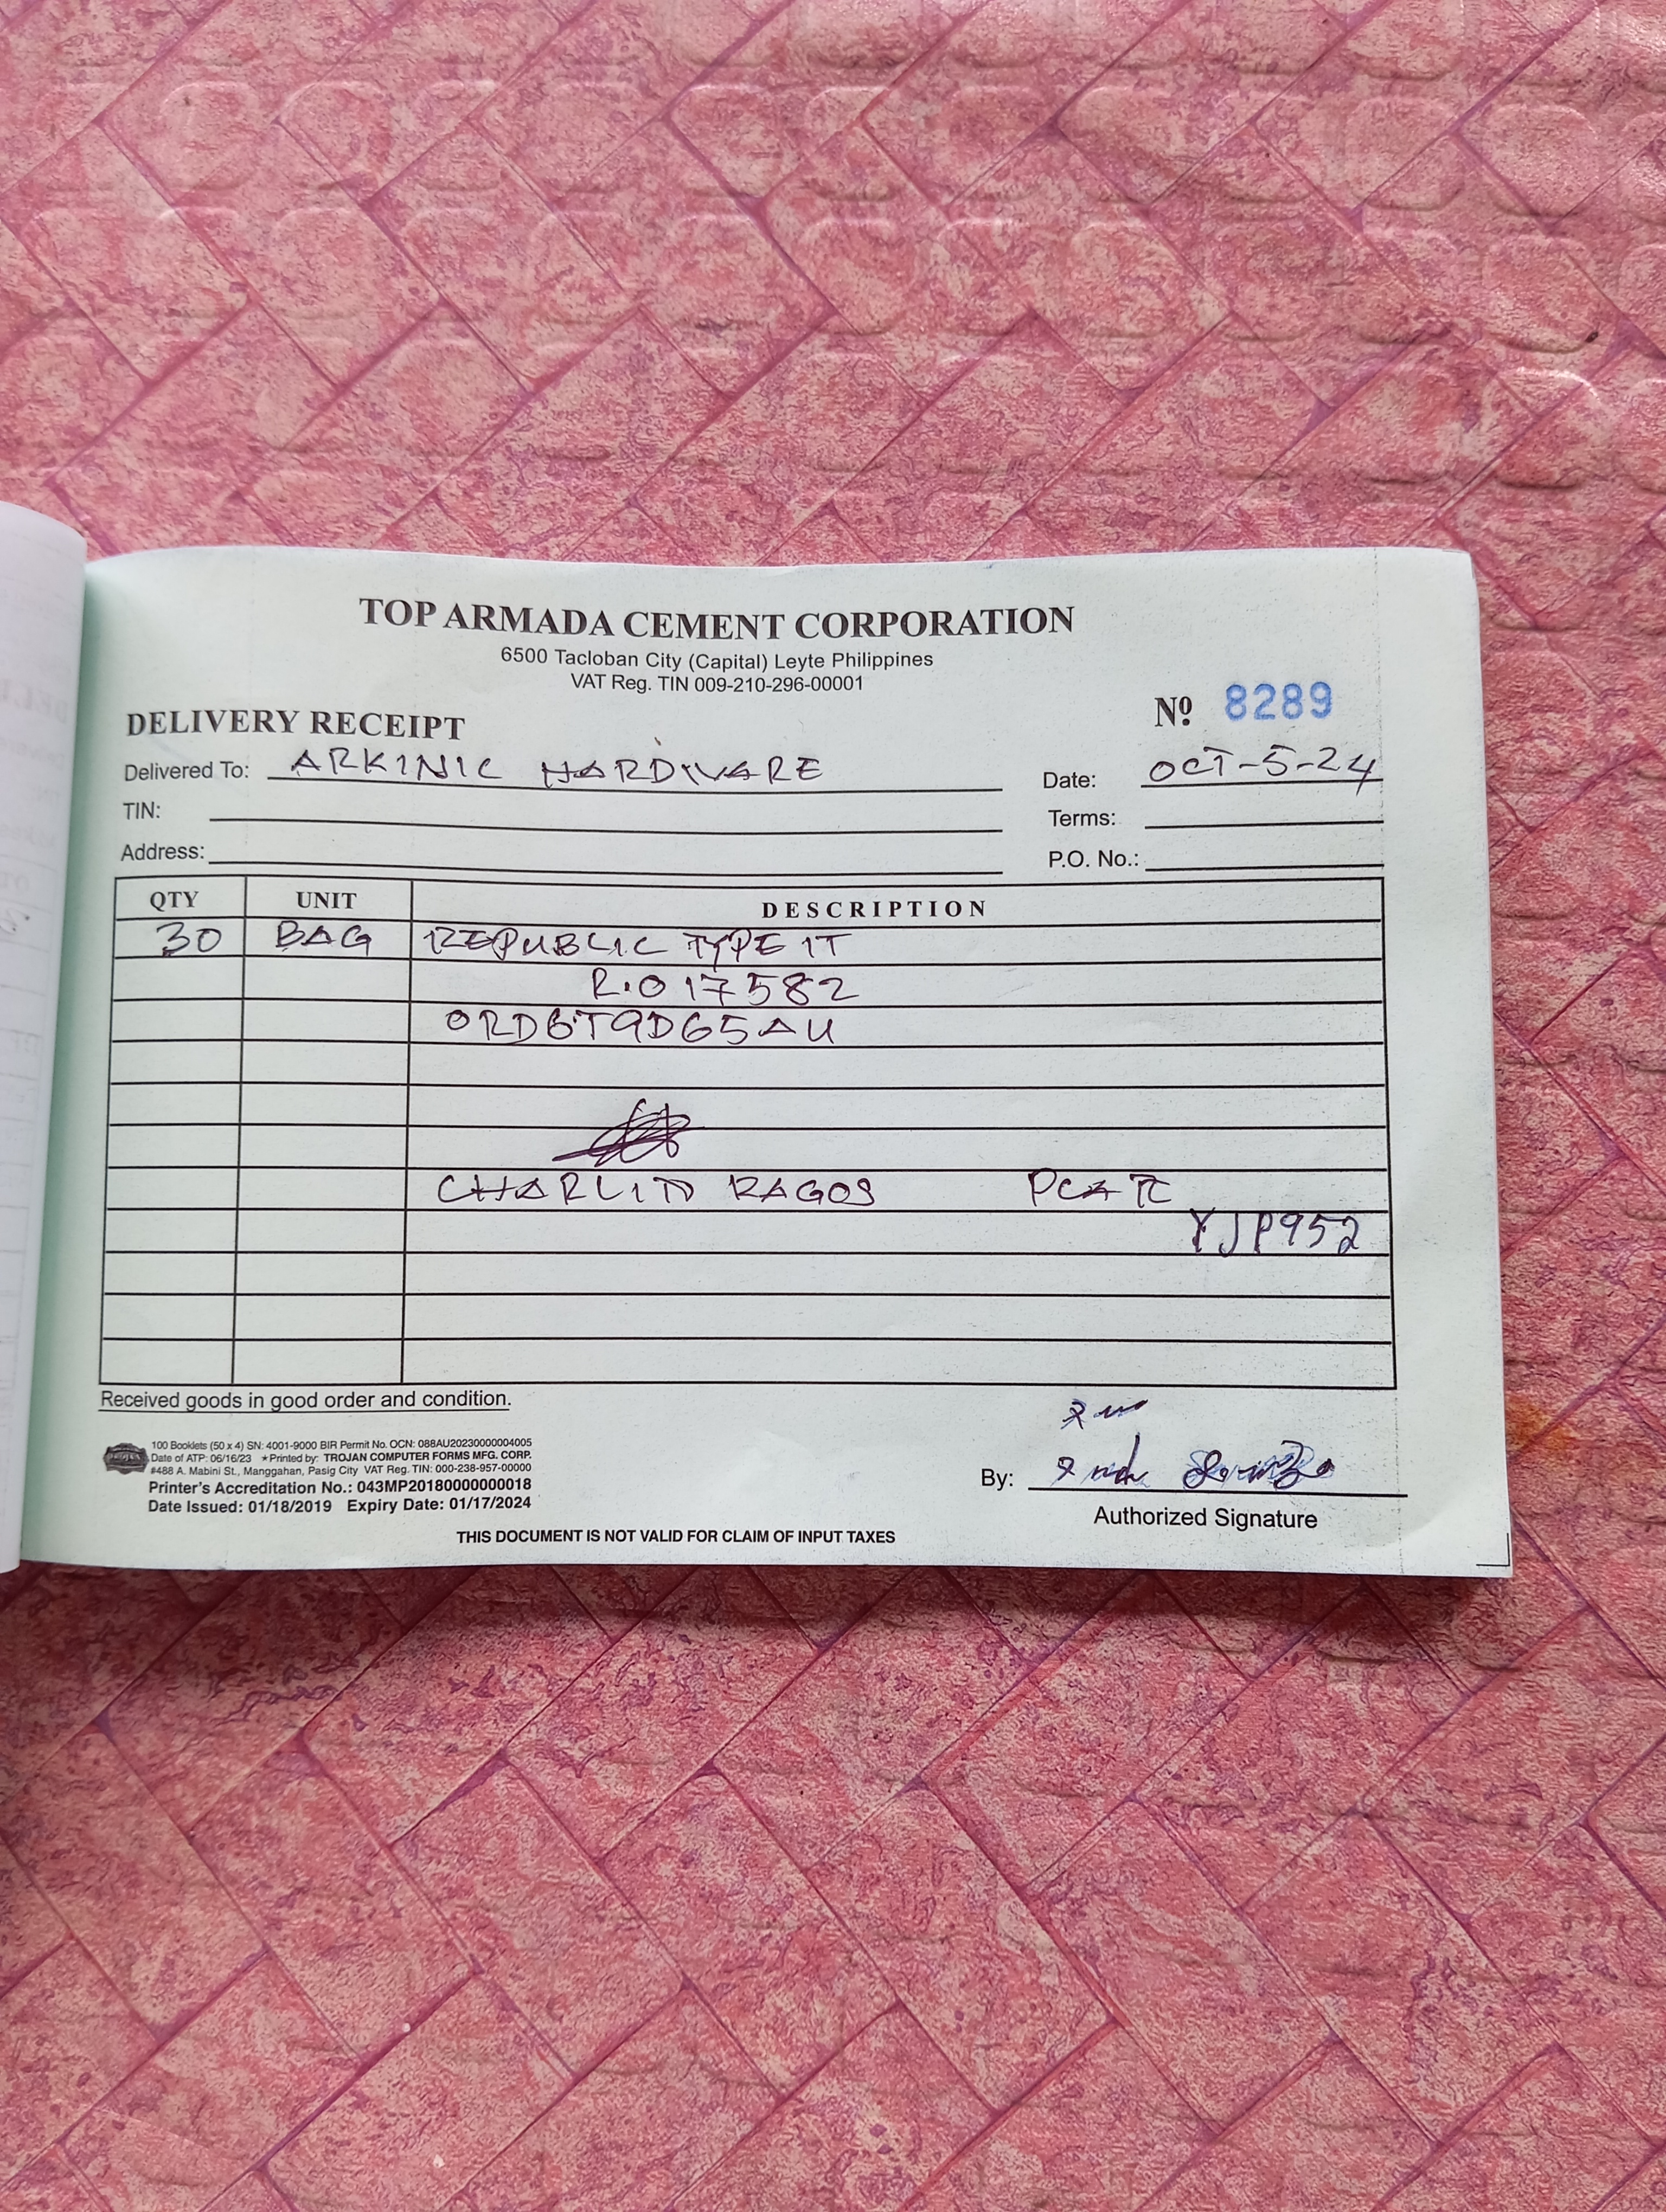 TOP ARMADA CEMENT CORPORATION
6500 Tacloban City (Capital) Leyte Philippines
VAT Reg. TIN 009-210-296-00001
DELIVERY RECEIPT
Nº 8289
Delivered To: ARKINIC HARDWARE
Date: OCT-5-24
TIN:
Terms:
Address:
P.O. No.:
QTY UNIT DESCRIPTION
30 BAG REPUBLIC TYPE 1T
R.O 17582
ORD6T9D65AU
CHARLITO RAGOS
YJP952
Received goods in good order and condition.
100 Booklets (50 x 4) SN: 4001-9000 BIR Permit No. OCN: 088AU20230000004005
Date of ATP: 06/16/23 ★Printed by: TROJAN COMPUTER FORMS MFG. CORP.
#488 A. Mabini St., Manggahan, Pasig City VAT Reg. TIN: 000-238-957-00000
Printer's Accreditation No.: 043MP20180000000018
Date Issued: 01/18/2019 Expiry Date: 01/17/2024
By:
Authorized Signature
THIS DOCUMENT IS NOT VALID FOR CLAIM OF INPUT TAXES